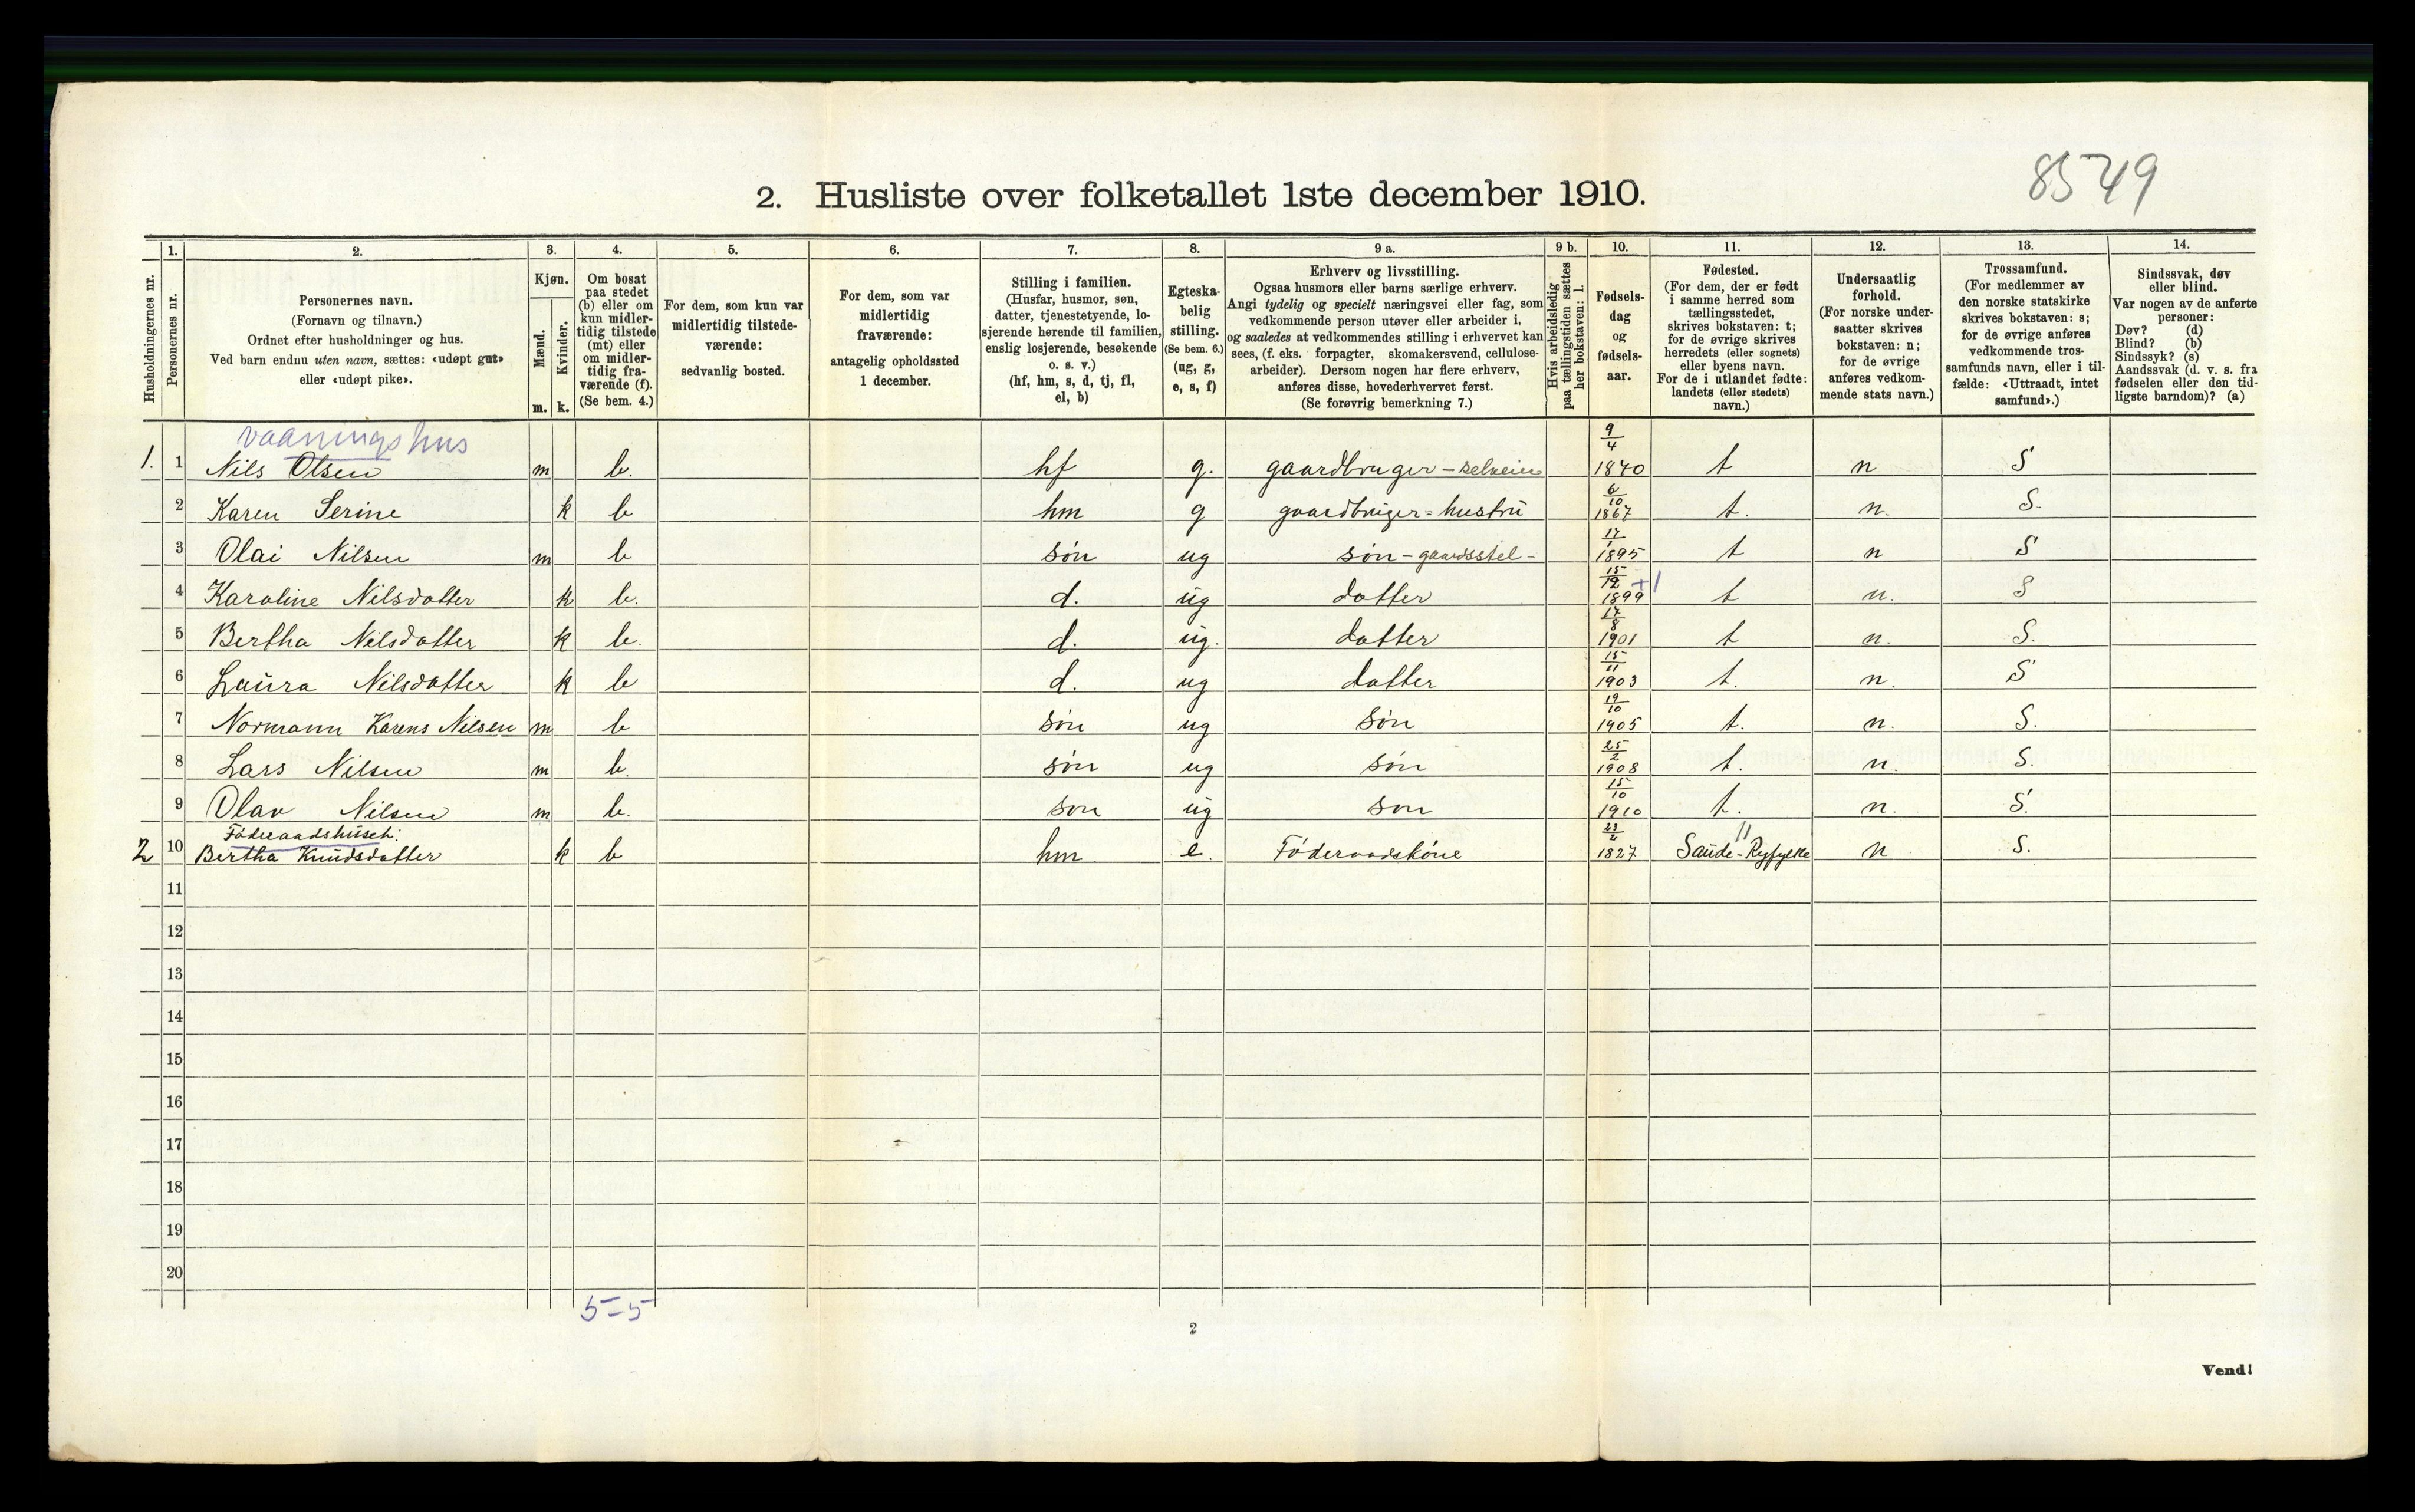 8549
2. Husliste over folketallet 1ste december 1910.
Husholdningernes nr.
1.
Personernes nr.
2.
Personernes navn.
(Fornavn og tilnavn.)
Ordnet efter husholdninger og hus.
Ved barn endnu uten navn, sættes: «udøpt gut»
eller «udøpt pike».
3.
Kjøn.
Mænd. Kvinder.
m. k.
4.
Om bosat
paa stedet
(b) eller om
kun midler-
tidig tilstede
(mt) eller
om midler-
tidig fra-
værende (f).
(Se bem. 4.)
5.
For dem, som kun var
midlertidig tilstede-
værende:
sedvanlig bosted.
6.
For dem, som var
midlertidig
fraværende:
antagelig opholdssted
1 december.
7.
Stilling i familien.
(Husfar, husmor, søn,
datter, tjenestetyende, lo-
sjerende hørende til familien,
enslig losjerende, besøkende
o. s. v.)
(hf, hm, s, d, tj, fl,
el, b)
8.
Egteska-
belig
stilling.
(Se bem. 6.)
(ug, g,
e, s, f)
9 a.
Erhverv og livsstilling.
Ogsaa husmors eller barns særlige erhverv.
Angi tydelig og specielt næringsvei eller fag, som
vedkommende person utøver eller arbeider i,
og saaledes at vedkommendes stilling i erhvervet kan
sees, (f. eks. forpagter, skomakersvend, cellulose-
arbeider). Dersom nogen har flere erhverv,
anføres disse, hovederhvervet først.
(Se forøvrig bemerkning 7.)
9 b.
Hvis arbeidsledig
paa tællingstiden sættes
her bokstaven: l.
10.
Fødsels-
dag
og
fødsels-
aar.
11.
Fødested.
(For dem, der er født
i samme herred som
tællingsstedet,
skrives bokstaven: t;
for de øvrige skrives
herredets (eller sognets)
eller byens navn.
For de i utlandet fødte:
landets (eller stedets)
navn.)
12.
Undersaatlig
forhold.
(For norske under-
saatter skrives
bokstaven: n;
for de øvrige
anføres vedkom-
mende stats navn.)
13.
Trossamfund.
(For medlemmer av
den norske statskirke
skrives bokstaven: s;
for de øvrige anføres
vedkommende tros-
samfunds navn, eller i til-
fælde: «Uttraadt, intet
samfund».)
14.
Sindssvak, døv
eller blind.
Var nogen av de anførte
personer:
Døv? (d)
Blind? (b)
Sindssyk? (s)
Aandssvak (d. v. s. fra
fødselen eller den tid-
ligste barndom)? (a)
vaaningshus
1. 1 Nils Olsen m b. hf g. gaardbruger - selveier 9/4 1840 t n S
2 Karen Serine k b hm g gaardbruger = hustru 6/10 1867 t. n. S.
3 Olai Nilsen m b søn ug søn - gaardsstel - 17/1 1895 t n S
4 Karoline Nilsdatter k b. d. ug datter 15/12 1899 +1 t n. S
5 Bertha Nilsdatter k b. d. ug. datter 17/8 1901 t n. S.
6 Laura Nilsdatter k b d. ug datter 15/11 1903 t. n. S
7 Normann Karens Nilsen m b søn ug søn 19/10 1905 t. n. S.
8 Lars Nilsen m b. søn ug søn 25/2 1908 t. n. S.
9 Olav Nilsen m b. søn ug søn 15/10 1910 t. n. S.
Føderaadshuset:
2 10 Bertha Knudsdatter k b hm e. Føderaadskone 23/2 1827 Saude - Ryfylke 11 n S.
11
12
13
14
15
16
17
18
19
20
5-5
2
Vend!